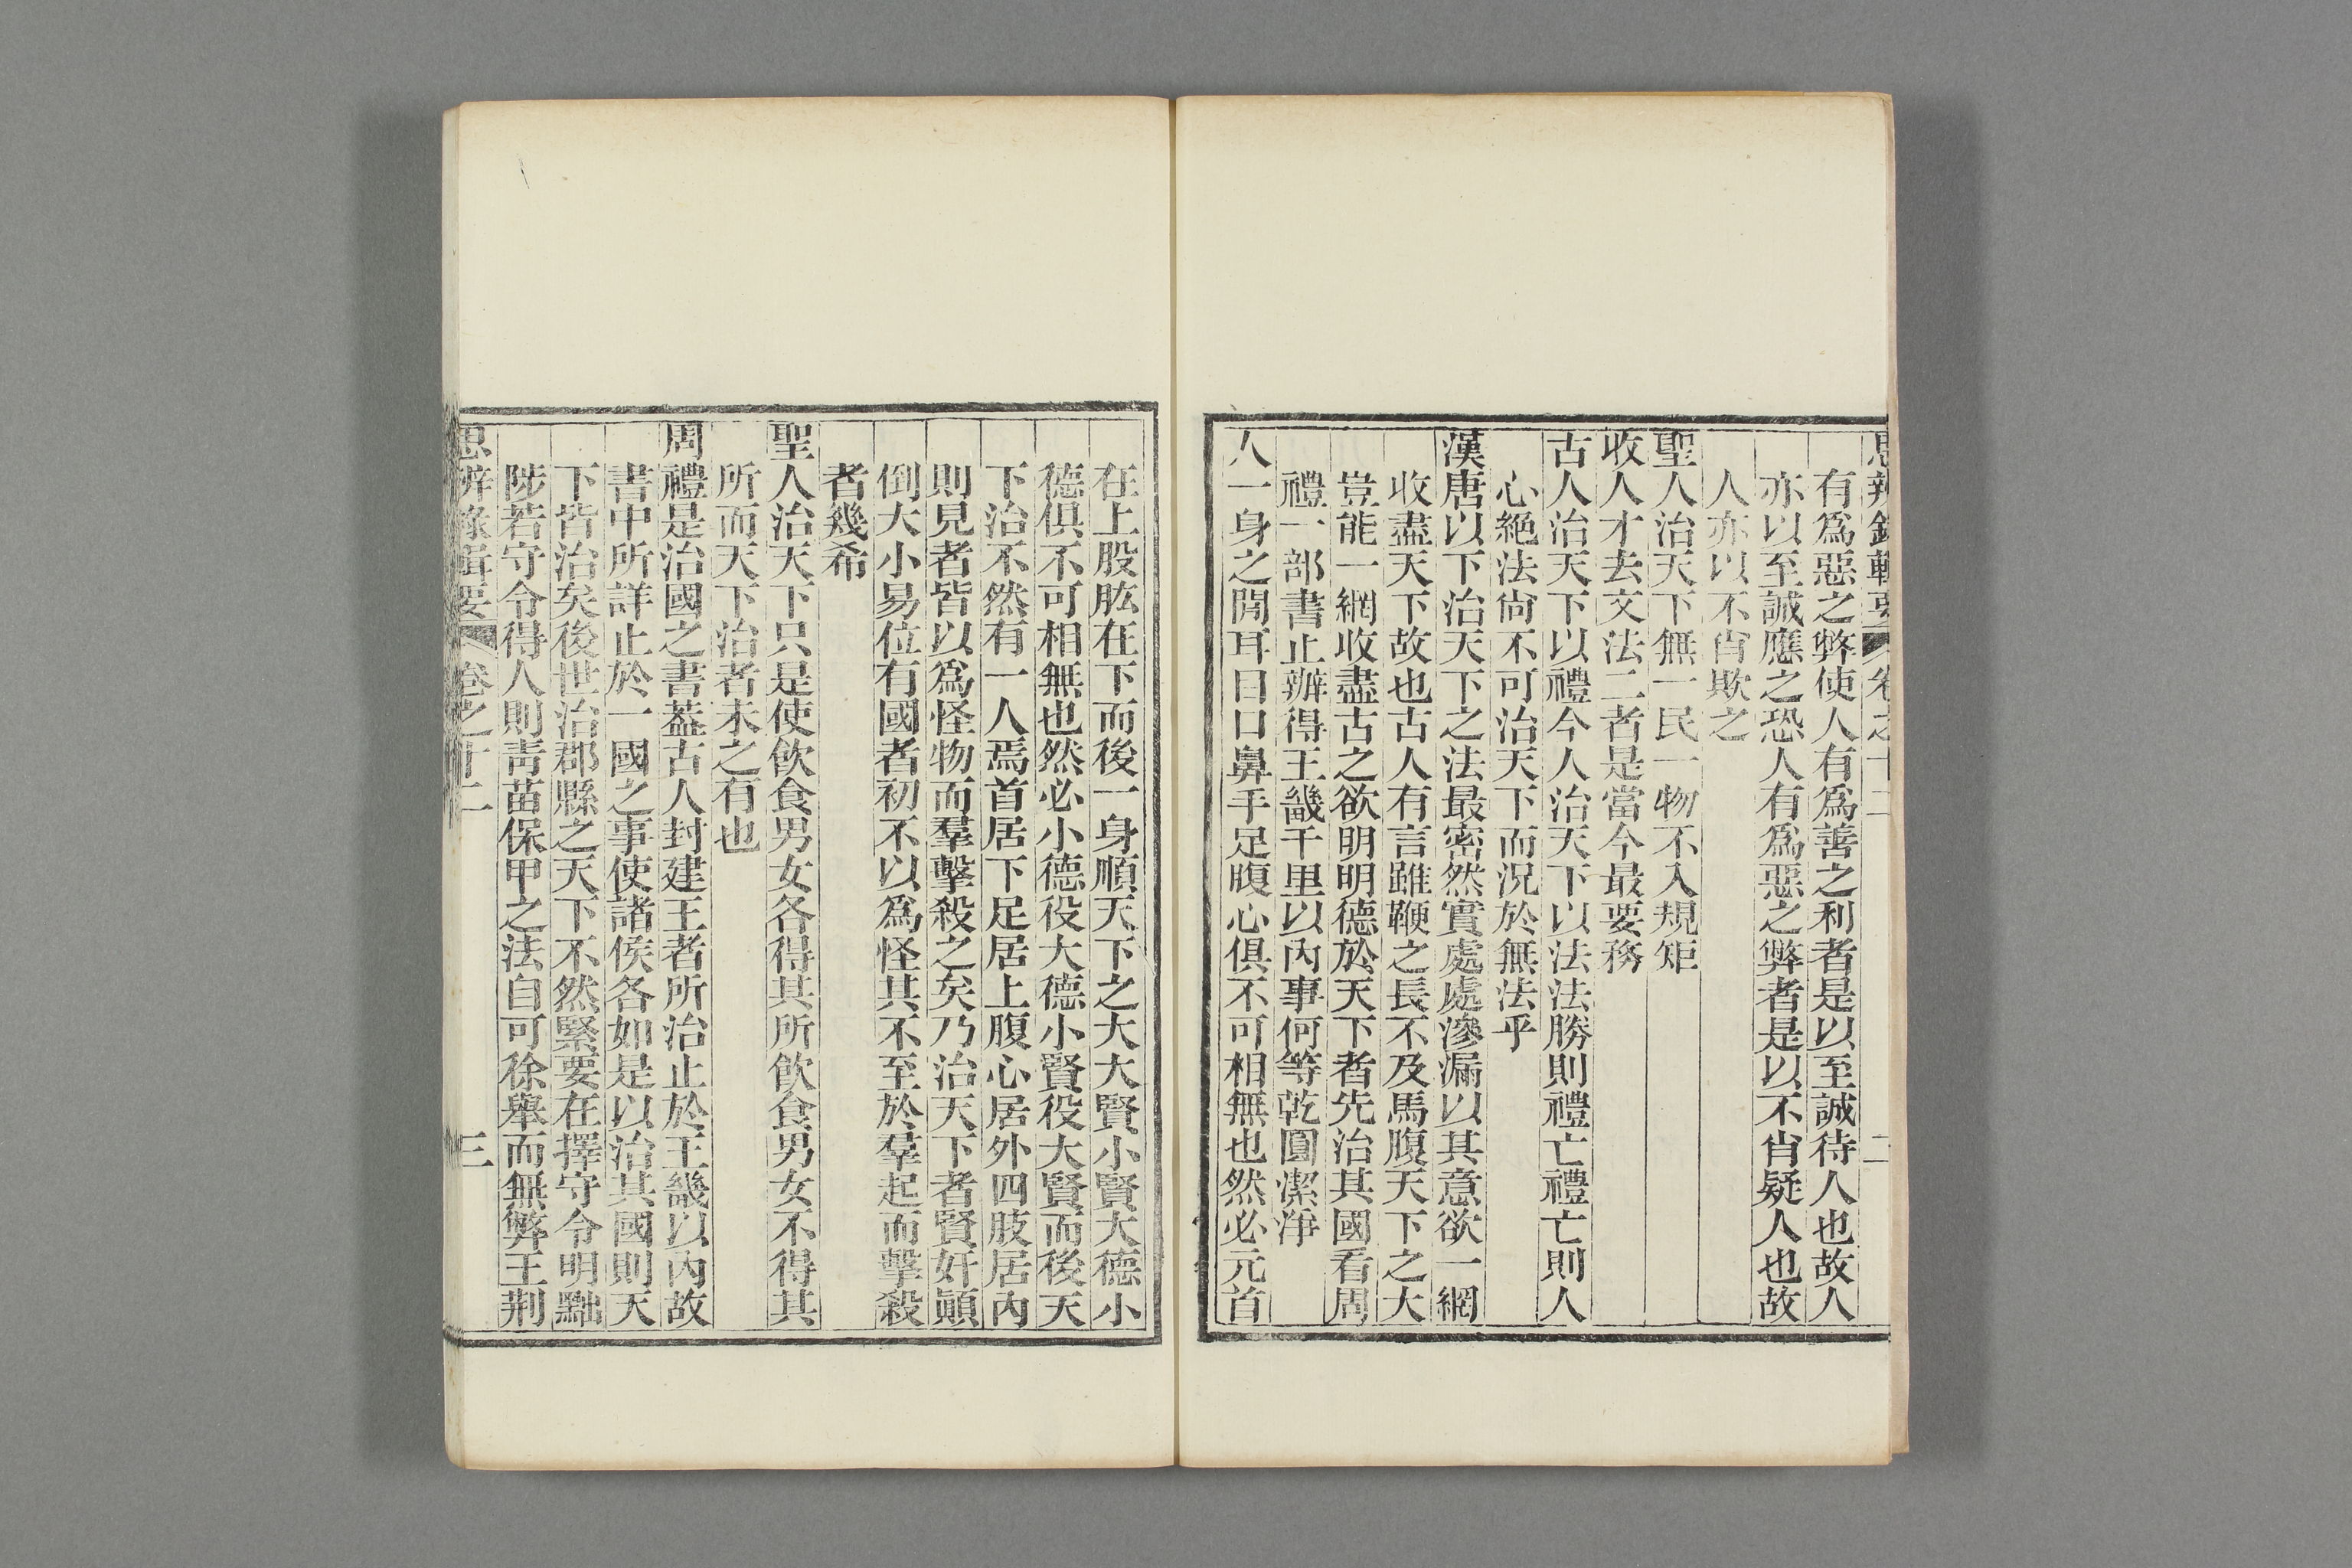 思辨錄輯要 卷之十二 二
有爲惡之弊使人有爲善之利者是以至誠待人也故人
亦以至誠應之恐人有爲惡之弊者是以不肖疑人也故
人亦以不肖欺之
聖人治天下無一民一物不入規矩
收人才去文法二者是當今最要務
古人治天下以禮今人治天下以法法勝則禮亡禮亡則人
心絕法尙不可治天下而況於無法乎
漢唐以下治天下之法最密然實處處滲漏以其意欲一網
收盡天下故也古人有言雖鞭之長不及馬腹天下之大
豈能一網收盡古之欲明明德於天下者先治其國看周
禮一部書止辦得王畿千里以內事何等乾圓潔淨
人一身之閒耳目口鼻手足腹心俱不可相無也然必元首
在上股肱在下而後一身順天下之大大賢小賢大德小
德俱不可相無也然必小德役大德小賢役大賢而後天
下治不然有一人焉首居下足居上腹心居外四肢居內
則見者皆以爲怪物而羣擊殺之矣乃治天下者賢奸顚
倒大小易位有國者初不以爲怪其不至於羣起而擊殺
者幾希
聖人治天下只是使飮食男女各得其所飮食男女不得其
所而天下治者未之有也
周禮是治國之書葢古人封建王者所治止於王畿以內故
書中所詳止於一國之事使諸侯各如是以治其國則天
下皆治矣後世治郡縣之天下不然緊要在擇守令明黜
陟若守令得人則靑苗保甲之法自可徐舉而無弊王荆
思辨錄輯要 卷之十二 三